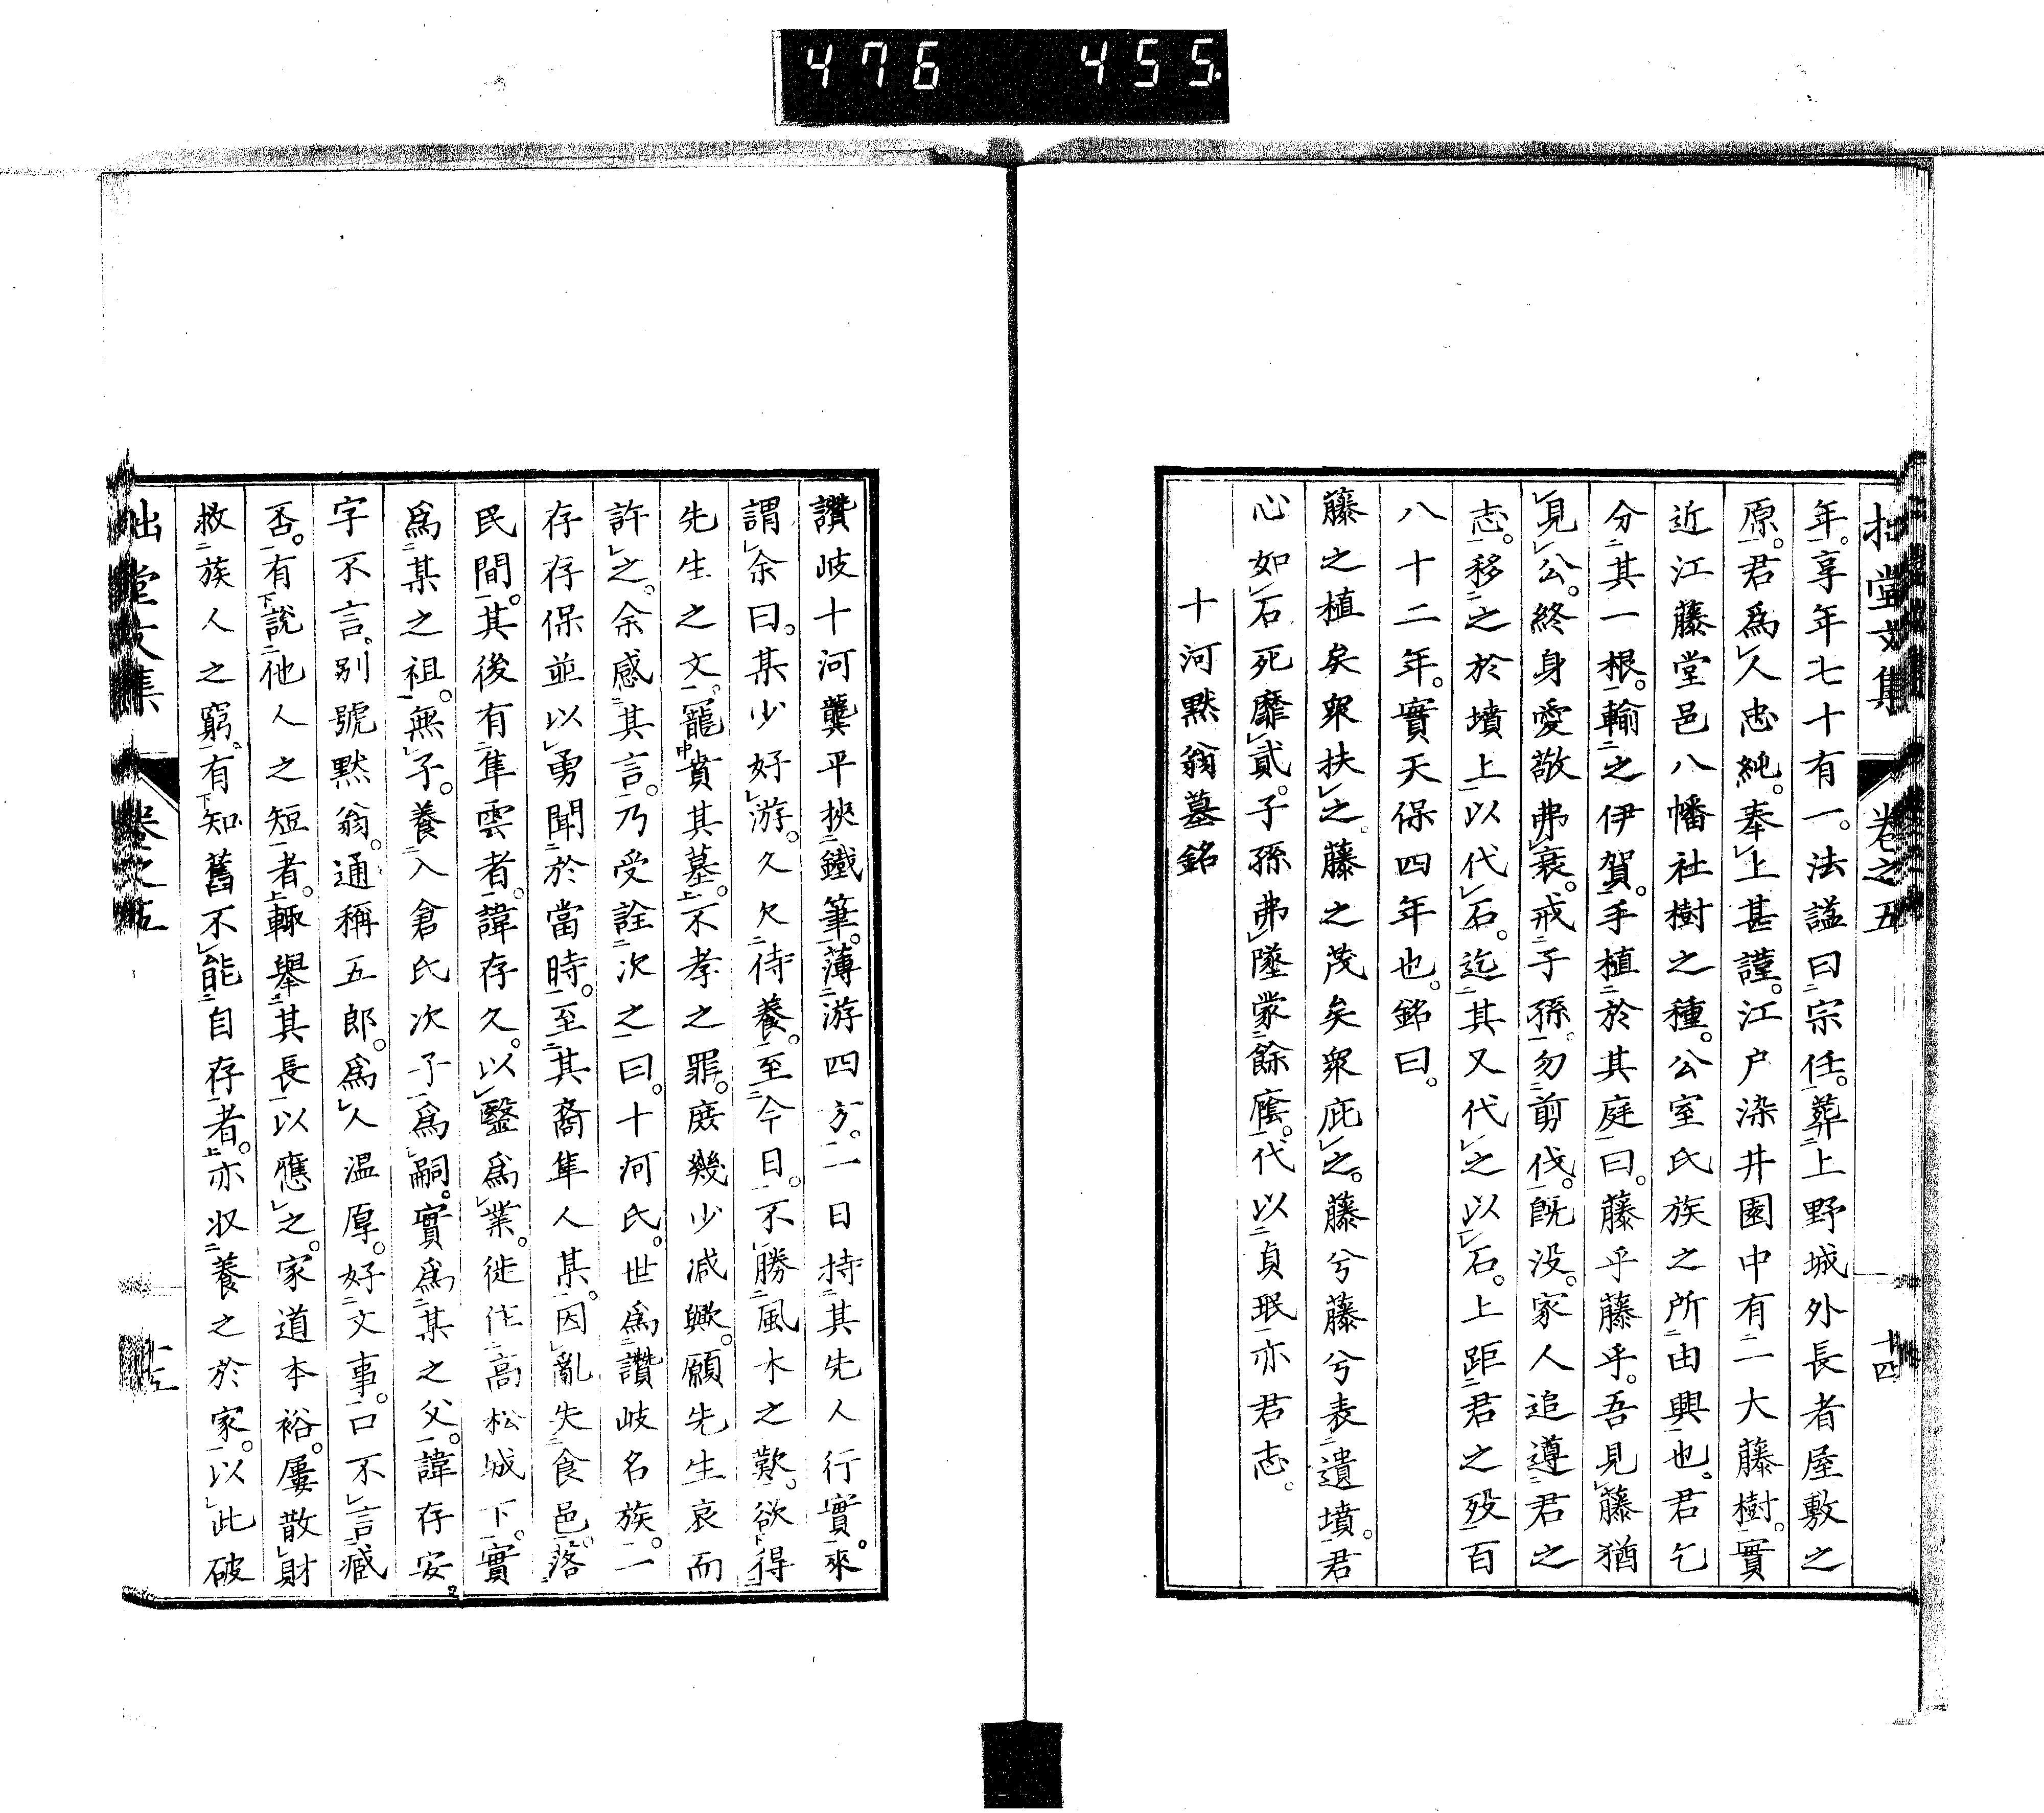 476 455
拙堂文集 卷之五 十四
年。享年七十有一。法謚曰宗任。葬上野城外長者屋敷之
原。君爲人忠純。奉上甚謹。江戶染井園中有一大藤樹。實
近江藤堂邑八幡社樹之種。公室氏族之所由興也。君乞
分其一根。輸之伊賀。手植於其庭曰。藤乎藤乎。吾見藤猶
見公。終身愛敬弗衰。戒子孫。勿剪伐。既没。家人追遵君之
志。移之於墳上以代石。迄其又代之以石。上距君之歿百
八十二年。實天保四年也。銘曰。
藤之植矣衆扶之。藤之茂矣衆庇之。藤兮藤兮表遺墳。君
心如石死靡貳。子孫弗墜蒙餘廕。代以貞珉亦君志。
十河黙翁墓銘
讚岐十河龔平挾鐵筆。薄游四方。一日持其先人行實。來
謂余曰。某少好游。久欠侍養。至今日。不勝風木之歎。欲得
先生之文。寵賁其墓。不孝之罪。庻幾少减歟。願先生哀而
許之。余感其言。乃受詮次之曰。十河氏。世爲讚岐名族。一
存存保並以勇聞於當時。至其裔隼人某。因亂失食邑。落
民間。其後有隼雲者。諱存久。以醫爲業。徙住高松城下。實
爲某之祖。無子。養入倉氏次子爲嗣。實爲某之父。諱存安
字不言。別號黙翁。通稱五郎。爲人温厚。好文事。口不言臧
否。有說他人之短者。輙舉其長以應之。家道本裕。屢散財
救族人之窮。有知舊不能自存者。亦收養之於家。以此破
拙堂文集 卷之五